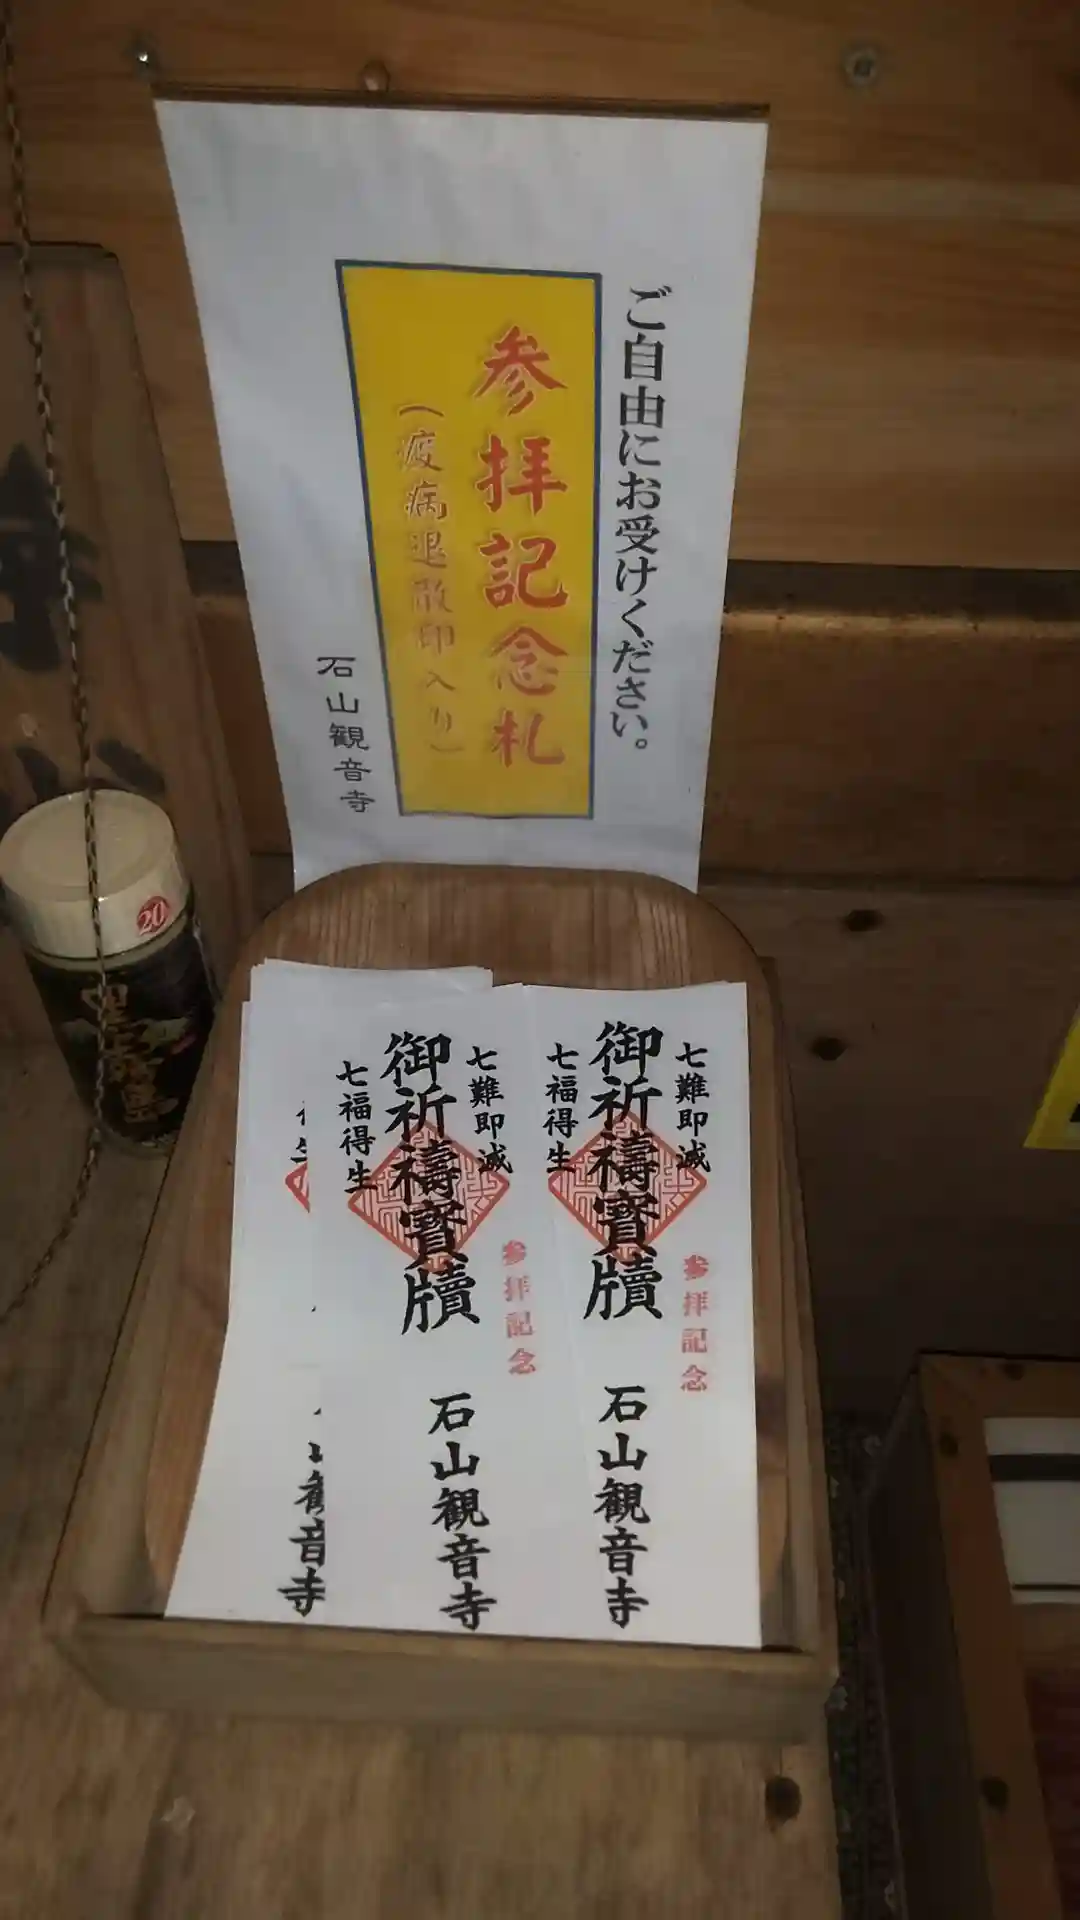 ご自由にお受けください。
参拝記念札
(疫病退散印入り)
石山観音寺
七難即滅
御祈禱寶牘
七福得生
参拝記念
石山観音寺
七難即滅
御祈禱寶牘
七福得生
参拝記念
石山観音寺
観音寺
20